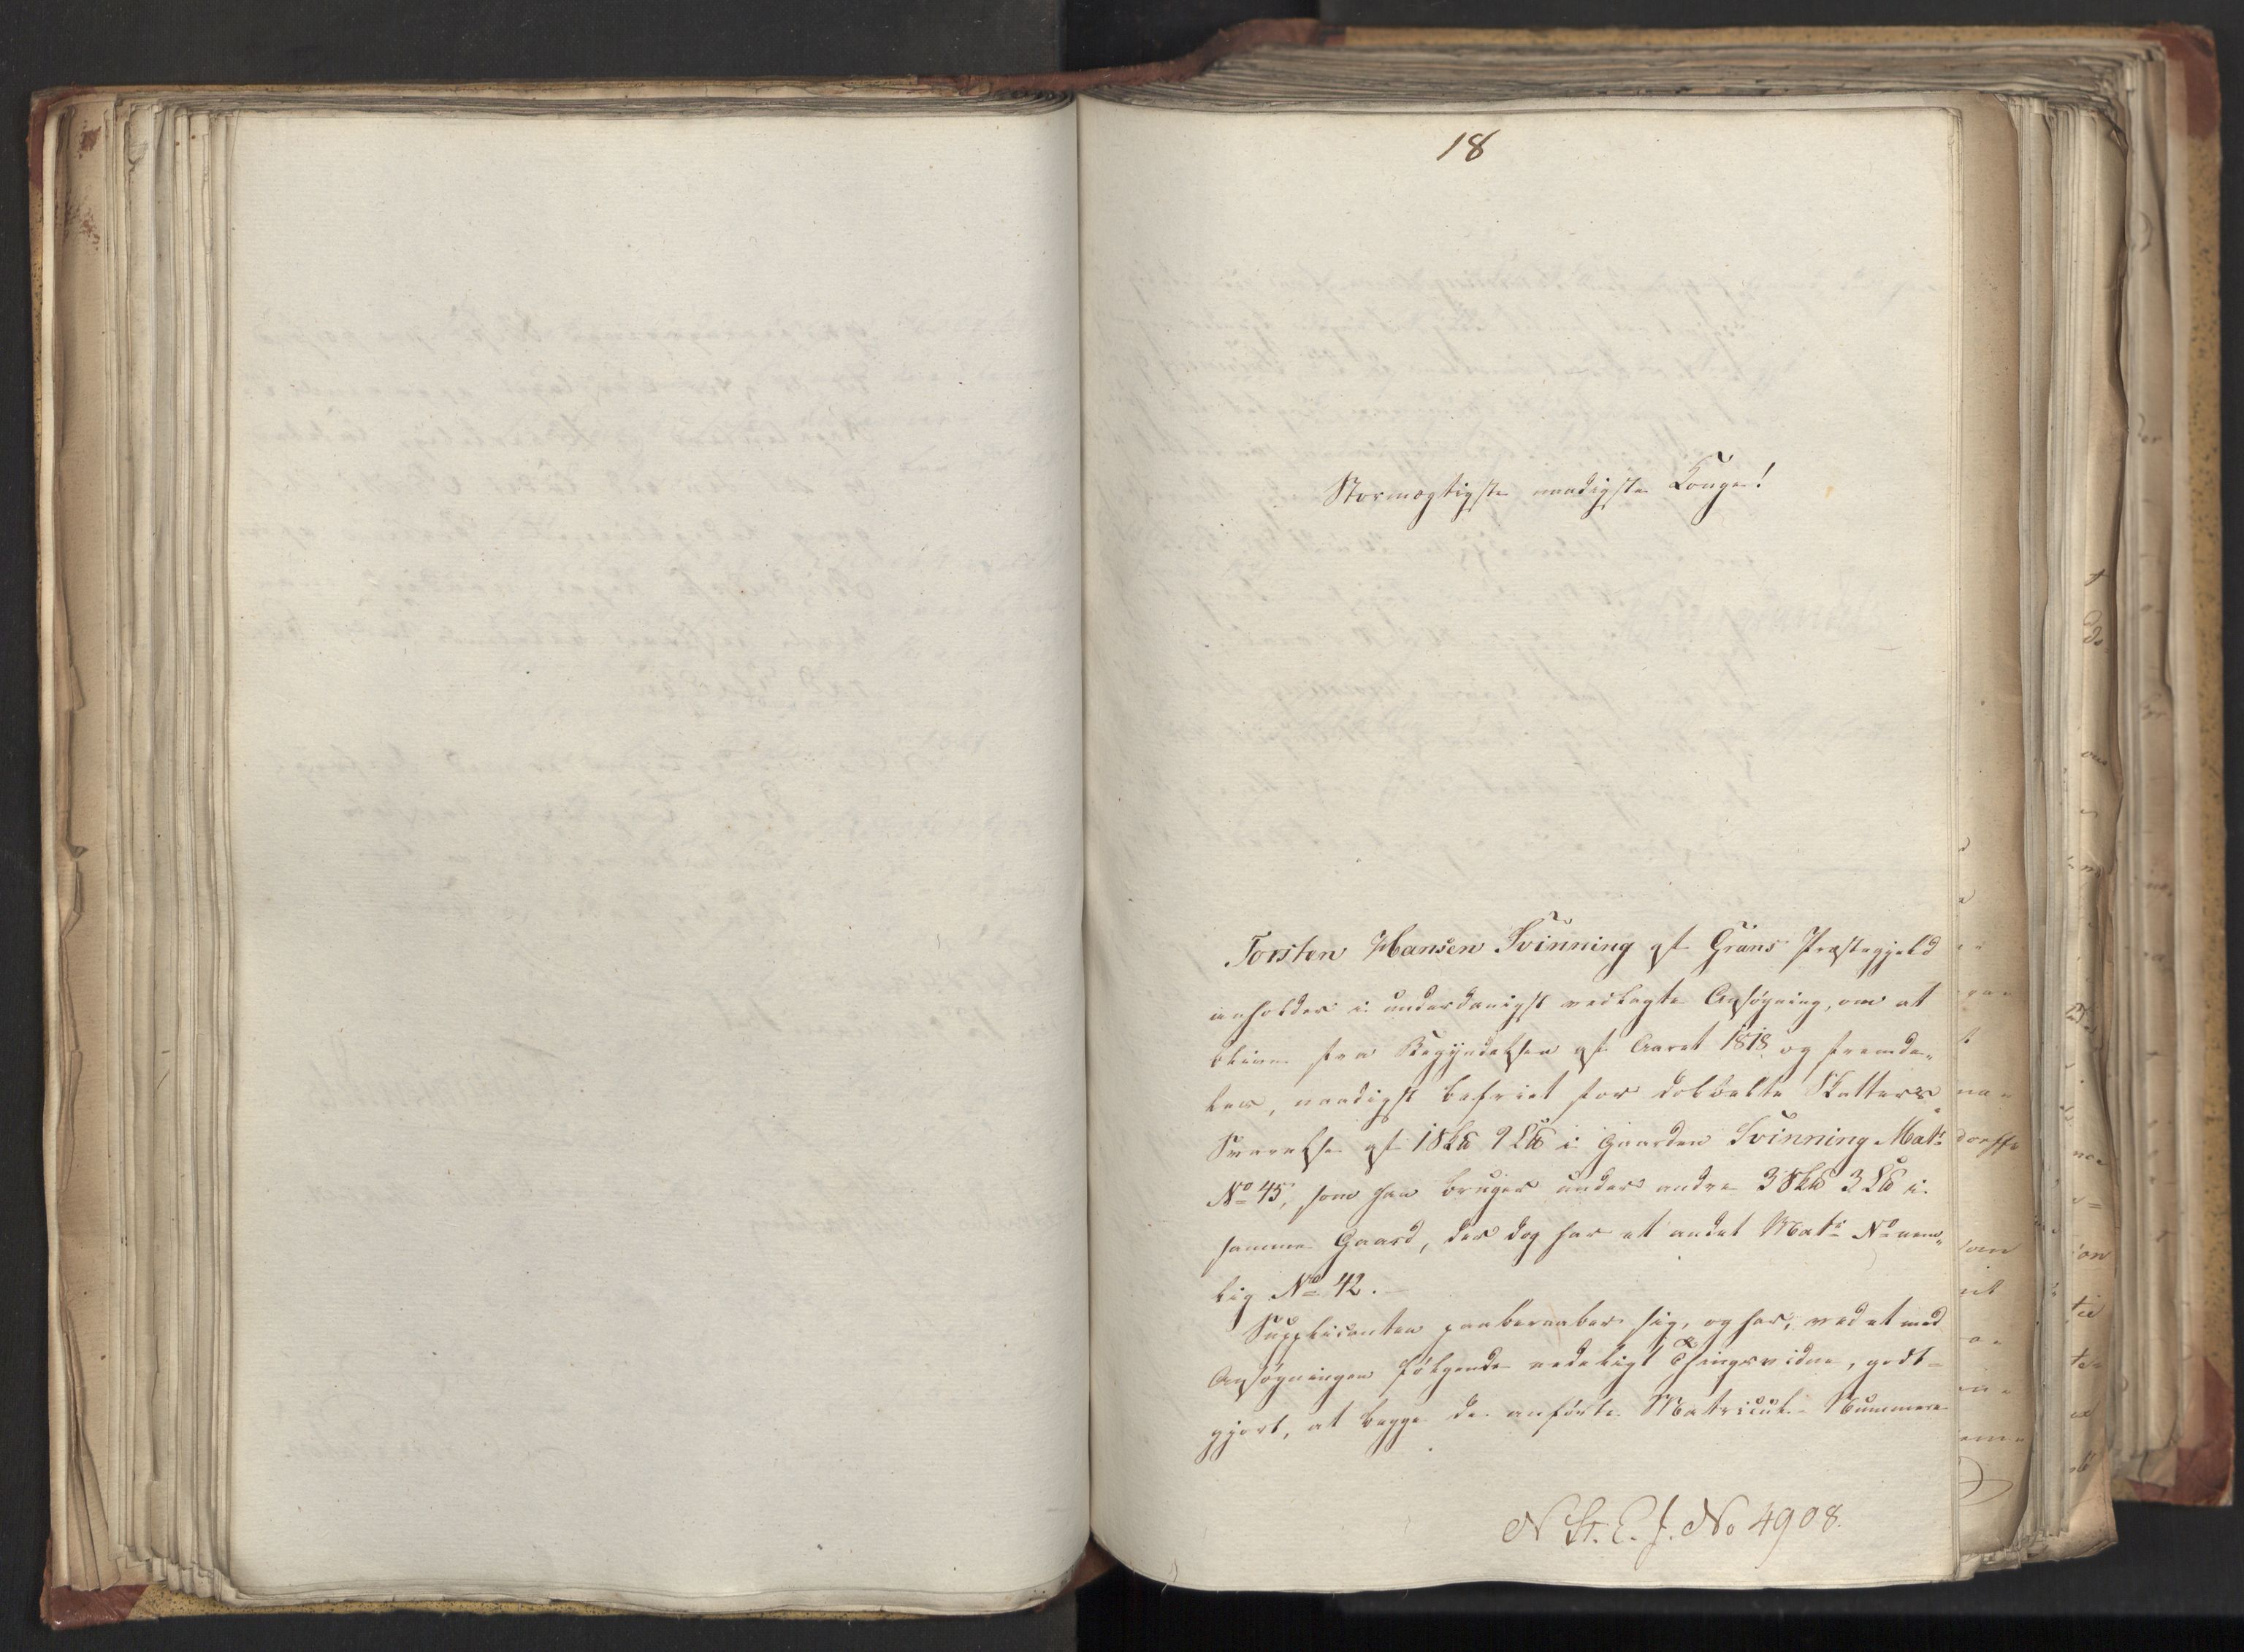 18
Stormægtigste naadigste Konge!
Torsten Hansen Svinning af Grans Præstegjeld
anholder i underdanigst vedlagte Ansøgning, om at
blive fra Begyndelsen af Aaret 1818 og fremde„
les, naadigst befriet for dobbelte Skatters„
Svarelse af 1 Sk℔ 9 L℔ i Gaarden Svinning Matr:
No 45, som han bruger under andre 3 Sk℔ 3 L℔ i
samme Gaard, der dog har et andet Matr: No nem„
lig No 42.
Supplicanten paaberaaber sig, og har, ved et med
Ansøgningen følgende edeligt Thingsvidne, godt-
gjort, at begge de anførte Matricul-Nummere
N St. E. J. No 4908.